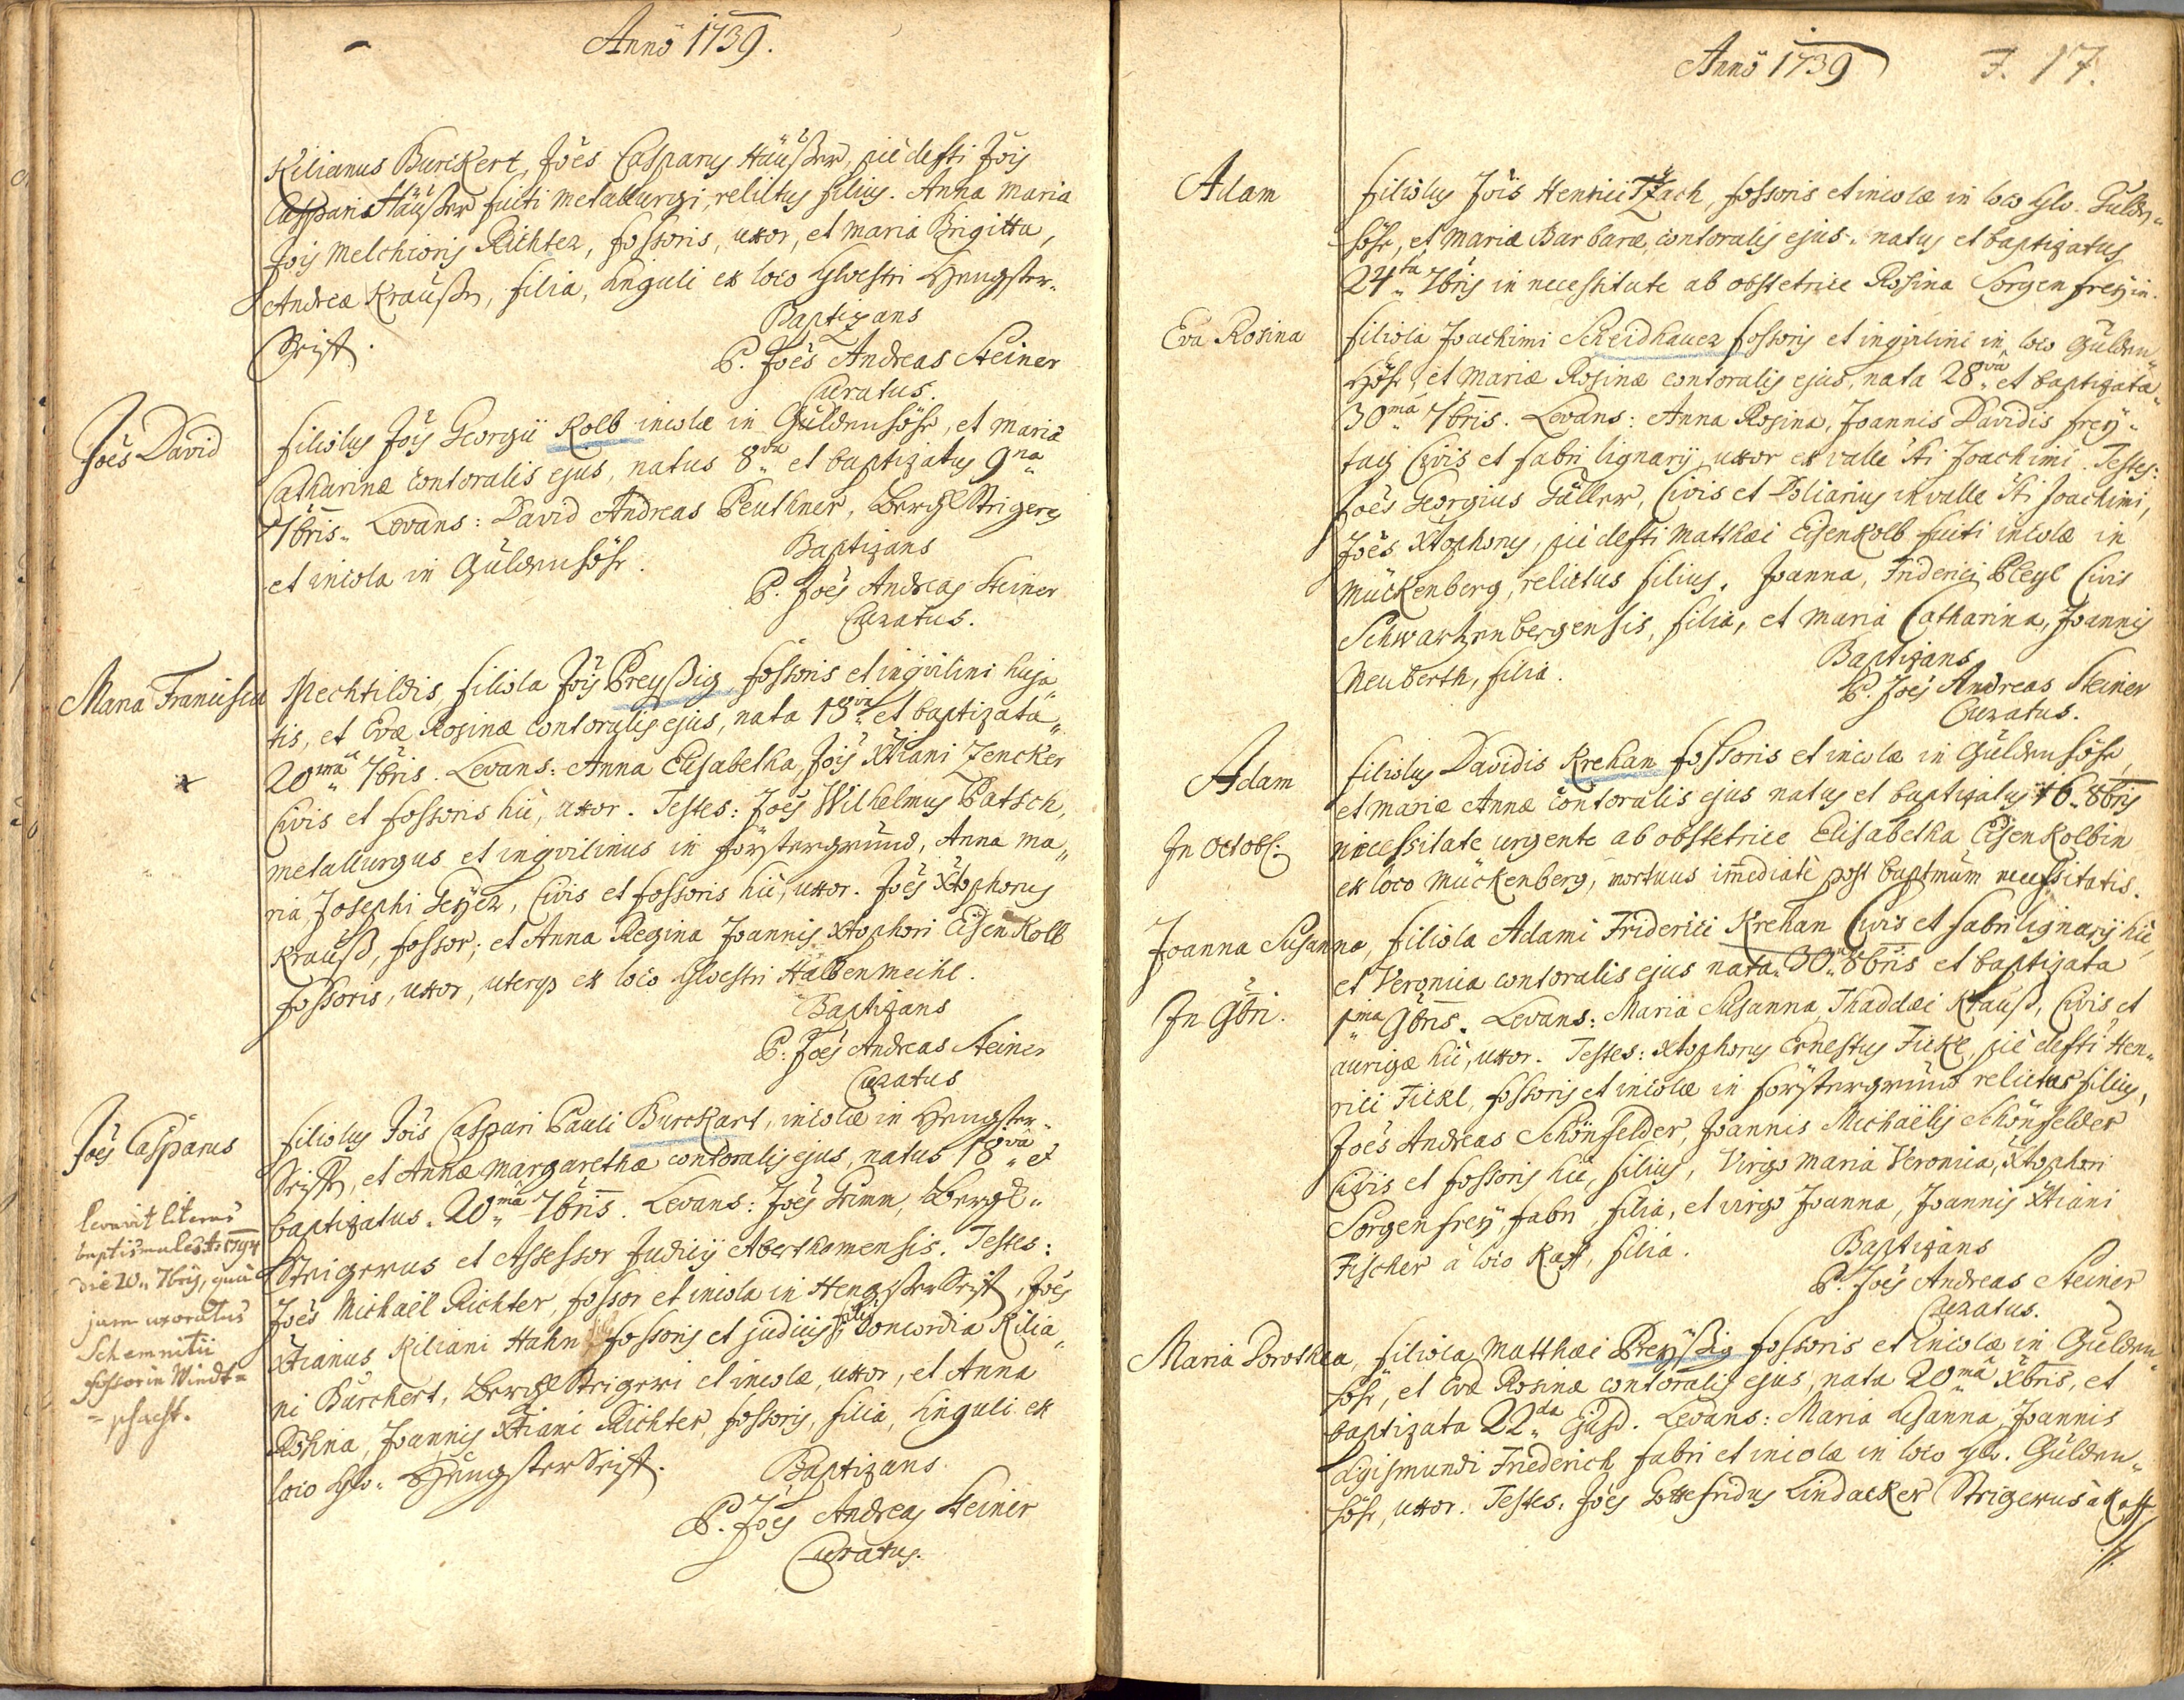 Anno 1739.
Kilianus Burckert, Joës Casparus Häußer, piè defti Jois
Casparis Häußer fuiti metallurgi, relictus filius. Anna Maria
Jois Melchioris Richter, fossoris, uxor, et Maria Brigitta,
Andreæ Kraußen, filia, singuli ex loco Sylvestri Hengster-
Seiff.
Baptizans
P. Joës Andreas Steiner
Curatus.
Joës David
filiolus Jois Georgii Kolb incolæ in Güldenhöhe, et Mariæ
Catharinæ contoralis ejus, natus 8va et baptizatus 9na
7bris. Levans: David Andreas Peuthner, Bergl Strigerus
et incola in Güldenhöhe.
Baptizans
P. Joës Andreas Steiner
Curatus.
Maria Francisca
Mechtildis filiola Jois Preyßig fossoris et inqvilini huja
tis, et Evæ Rosinæ contoralis ejus, nata 18va et baptizata
20ma 7bris. Levans: Anna Elisabetha, Jois Xtiani Zencker
Civis et fossoris hic, uxor. Testes: Joës Wilhelmus Patsch,
metallurgus et inqvilinus in Förstergrund, Anna Ma
ria, Josephi Geyer, Civis et fossoris hic, uxor. Joës Xtophorus
Krauß, fossor; et Anna Regina Joannis Xtophori Eisen Kolb
fossoris, uxor, uterqs ex loco Sylvestri Halbenmeihl.
Baptizans
P. Joës Andreas Steiner
Curatus
Joës Casparus
filiolus Jois Caspari Pauli Burckart, incolæ in Hengster-
Seiffn, et Annæ Margarethæ contoralis ejus, natus 18va et
baptizatus 20ma 7bris. Levans: Joës Grimm, Bergl-
Strigerus et Assessor Judicij Aberthamensis. Testes:
Joës Michaël Richter, fossor et incola in Hengster Seiff, Joës
Xtianus Kiliani Hahn fossoris et judicis filius Concordia Kilia
ni Burchert, Bergl Strigeri et incolæ, uxor, et Anna
Rosina, Joannis Xtiani Richter, fossoris, filia, singuli ex
loco Sylv. Hengster Seiff.
Baptizans
P. Joës Andreas Steiner
Curatus.
levavit literas
baptismales Ao 1794
die 20 7bris, qua
jam uxoratus
Schemnitii
fossor in Windt-
-schacht.
Anno 1739
F. 17.
Adam
filiolus Jois Henrici Tzach, fossoris et incolæ in loco Sylv. Gulden
höhe, et Mariæ Barbaræ contoralis ejus. natus et baptizatus
24ta 7bris in necessitate ab obstetrice Rosina Sorgenfreyin.
Eva Rosina
filiola Joachimi Scheidhauer fossoris et inqvilini in loco Gülden
Höhe, et Mariæ Rosinæ contoralis ejus, nata 28va et baptizata
30ma 7bris. Levans: Anna Rosina, Joannis Davidis Frey-
tag Civis et fabri lignarij uxor ex valle Sti Joachimi. Testes:
Joës Georgius Häller, Civis et Doliarius in valle Sti Joachimi,
Joës Xtophorus, piè defti Matthæi Eisenkolb fuiti incolæ in
Mückenberg, relictus filius. Joanna, Friderici Pleyl Civis
Schwartzenbergensis, filia, et Maria Catharina, Joannis
Neuberth, filia.
Baptizans
P. Joës Andreas Steiner
Curatus.
Adam
filiolus Davidis Krehan fossoris et incolæ in Güldenhöhe,
et Mariæ Annæ contoralis ejus natus et baptizatus 16 8bris
In Octobr:
necessitate urgente ab obstetrice Elisabetha Eisenkolbin
ex loco Mückenberg, mortuus immediatè post baptismum necessitatis.
Joanna Susanna,
filiola Adami Friderici Krehan Civis et fabri lignarij hic,
et Veronica contoralis ejus nata 30 8bris et baptizata
In 9bri.
1ma 9bris. Levans: Maria Susanna, Thaddæi Krauß, Civis et
aurigæ hic, uxor. Testes: Xtophorus Ernestus Fickl, piè defti Hen
rici Fickl, fossoris et incolæ in Förstergrund relictus filius,
Joës Andreas Schönfelder, Joannis Michaëlis Schönfelder
Civis et fossoris hic, filius, Virgo Maria Veronica, Xtophori
Sorgenfrey fabri, filia, et virgo Joanna, Joannis Xtiani
Fischer à loco Kaff, filia.
Baptizans
P. Joës Andreas Steiner
Curatus.
Maria Dorothea,
filiola Matthæi Preyßig fossoris et incolæ in Gülden
höhe, et Evæ Rosinæ contoralis ejus, nata 20ma Xbris, et
baptizata 22da Ejusd. Levans: Maria Susanna, Joannis
Sigismundi Friederich fabri et incolæ in loco Sylv. Gülden-
höhe, uxor. Testes: Joës Gottefridus Lindacker Strigerus à Kaff,